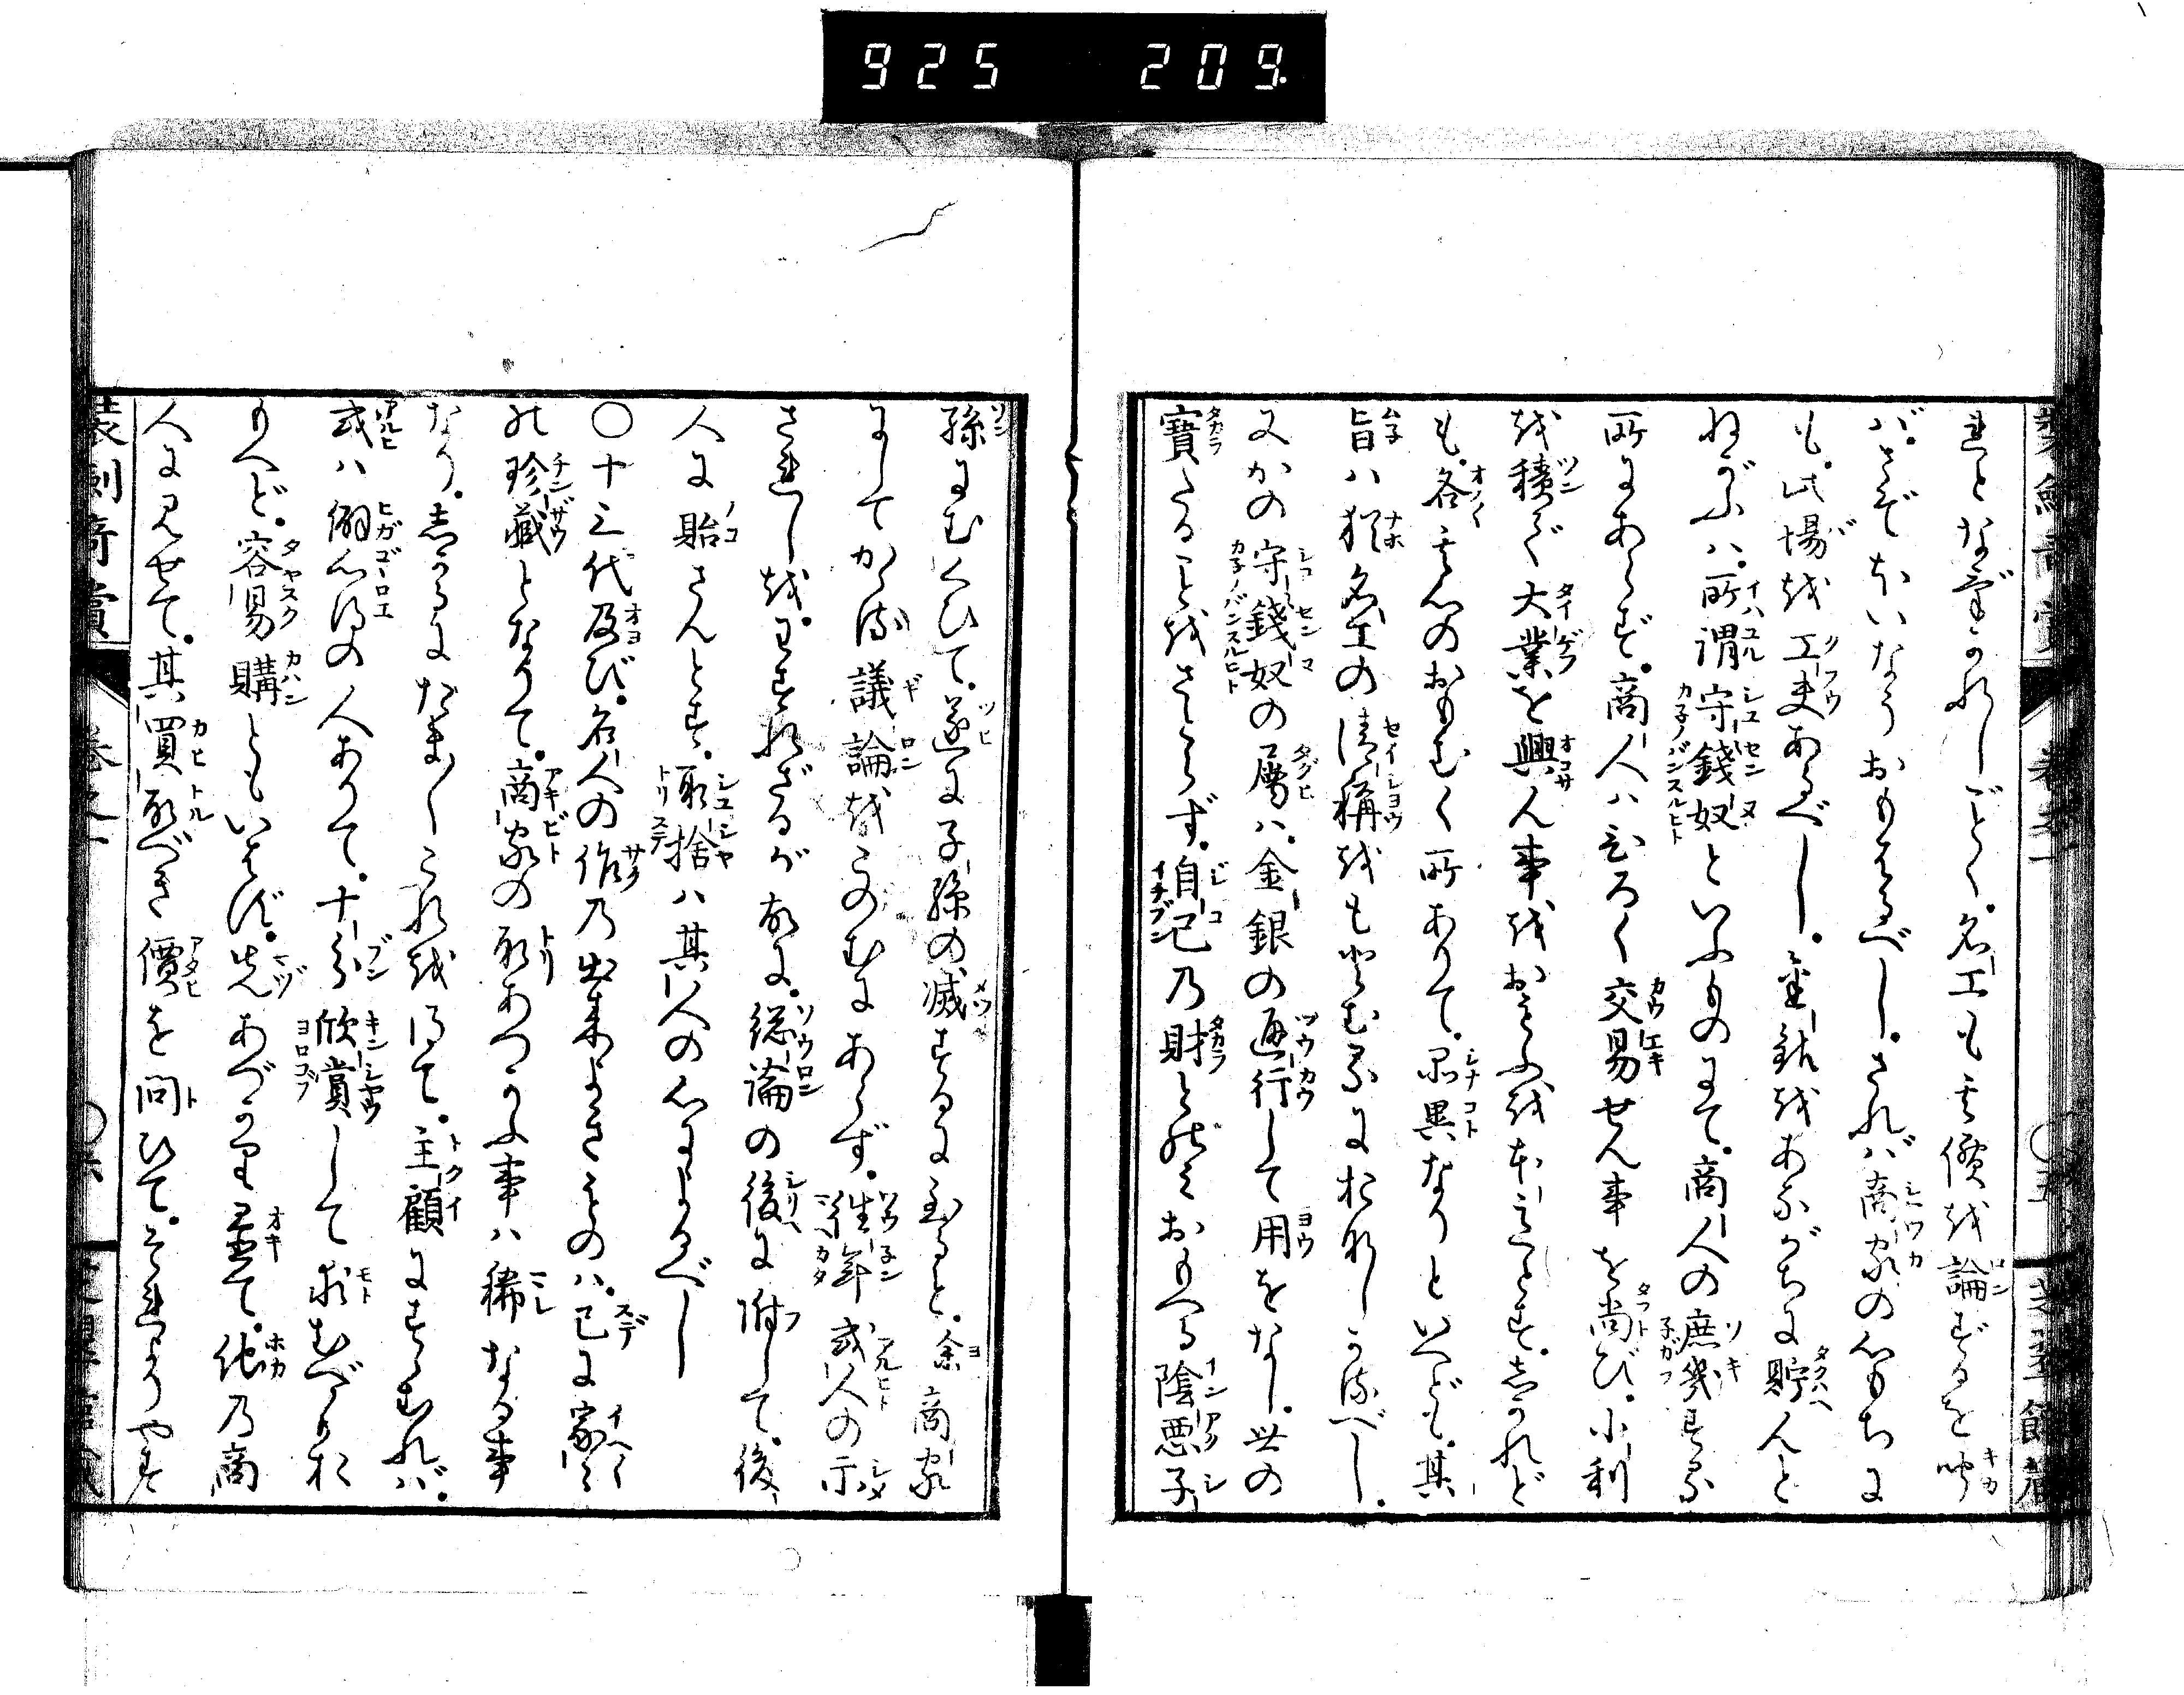 925 209
れとなぞらへがたし。名工も其價を論ずるを聞カ
バ。さぞ本いなうおもはるべし。されバ商家の心もちに
も。此場を工夫あるべし。金銀をあながちに貯んと
ねがふハ。所謂守錢奴といふものにて。商人の庶幾する
所にあらず。商人ハひろく交易せん事を尚び。小利
を積て大業を興ん事をおもふを本意とす。しかれど
も。各其心のおもむく所ありて。品異なりといへども。其
旨ハ猶名工の清稱をもとむるにおなじかるべし。
又かの守錢奴の屬ハ。金銀の通行して用をなし。世の
寶たることをさとらず。自己乃財とのミおもへる陰悪子
孫にむくひて。遂に子孫の滅するに至ると。余商家
にしてかゝる議論をこのむにあらず。往年或人の示
されしを。わすれざるが故に。總論の後に附して。後
人に貽さんとす。取捨ハ其人の心によるべし
〇十三代及び。名人の作乃出来よきものハ。已に家〻
の珍藏となりて。商家の取あつかふ事ハ稀なる事
なり。しかるにたま〱これを得て。主顧にすゝむれバ。
或ハ僻心得の人ありて。十分欣賞して求むべくお
もへど。容易購ともいはず。先あづかり置て。他乃商
人に見せて。其買取べき價を問ひて。それよりやす
装劍奇賞